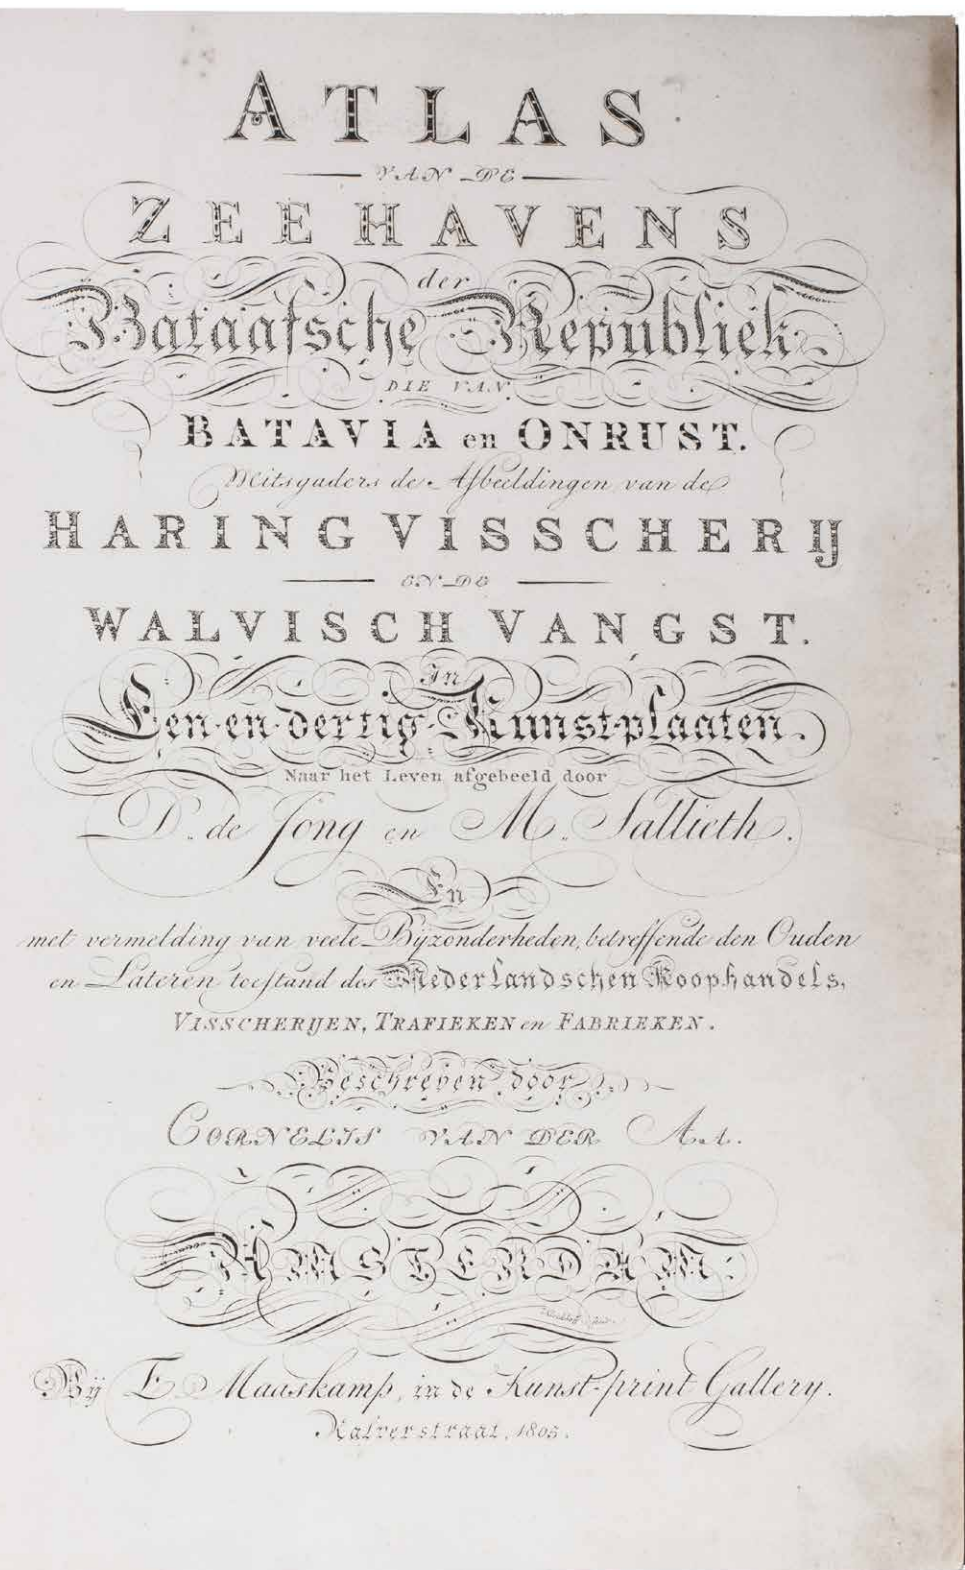 ATLAS
VAN DE
ZEEHAVENS
der
Bataafsche Republiek.
DIE VAN
BATAVIA en ONRUST.
Mitsgaders de Afbeeldingen van de
HARING VISSCHERIJ
EN DE
WALVISCH VANGST.
In
Een-en-dertig-Kunst-plaaten.
Naar het Leven afgebeeld door
D. de Jong en M. Sallieth.
En
met vermelding van veele Bijzonderheden, betreffende den Ouden
en Lateren toestand des Nederlandschen Koophandels,
VISSCHERIJEN, TRAFIEKEN en FABRIEKEN.
Beschreven door
CORNELIS VAN DER AA.
AMSTERDAM:
Bij E. Maaskamp, in de Kunst-print Gallery.
Kalverstraat, 1805.